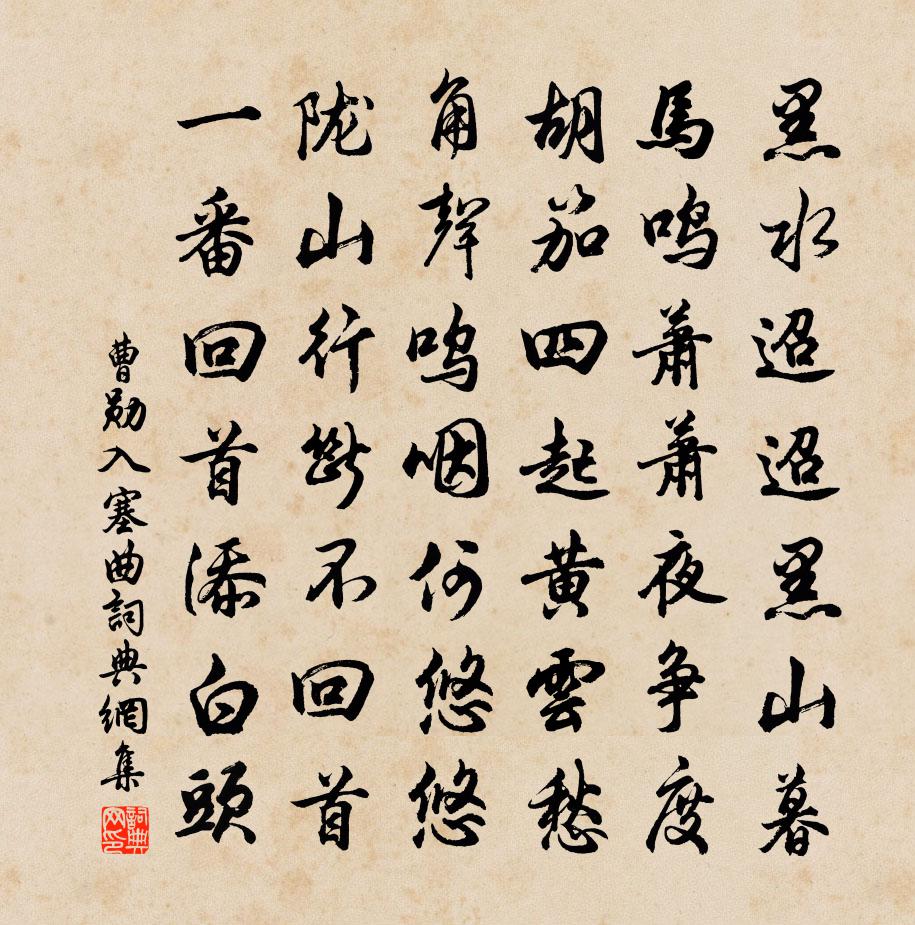 黑水迢迢黑山暮
馬鸣蕭蕭夜争度
胡笳四起黄雲愁
角聲鸣咽何悠悠
陇山行斷不回首
一番回首添白頭
曹勛入塞曲詞典網集
詞典网印